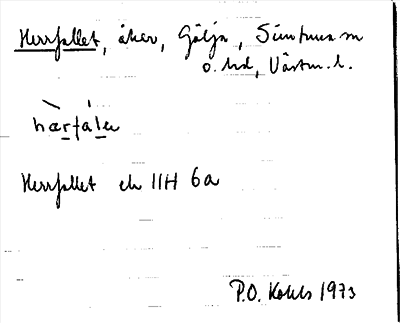 Herrfallet, åker, Gölja, Simtuna sn
o. hd, Västm. l.
hærfalɛ
Herrfallet ek 11H 6a
P.O. Kohls 1973